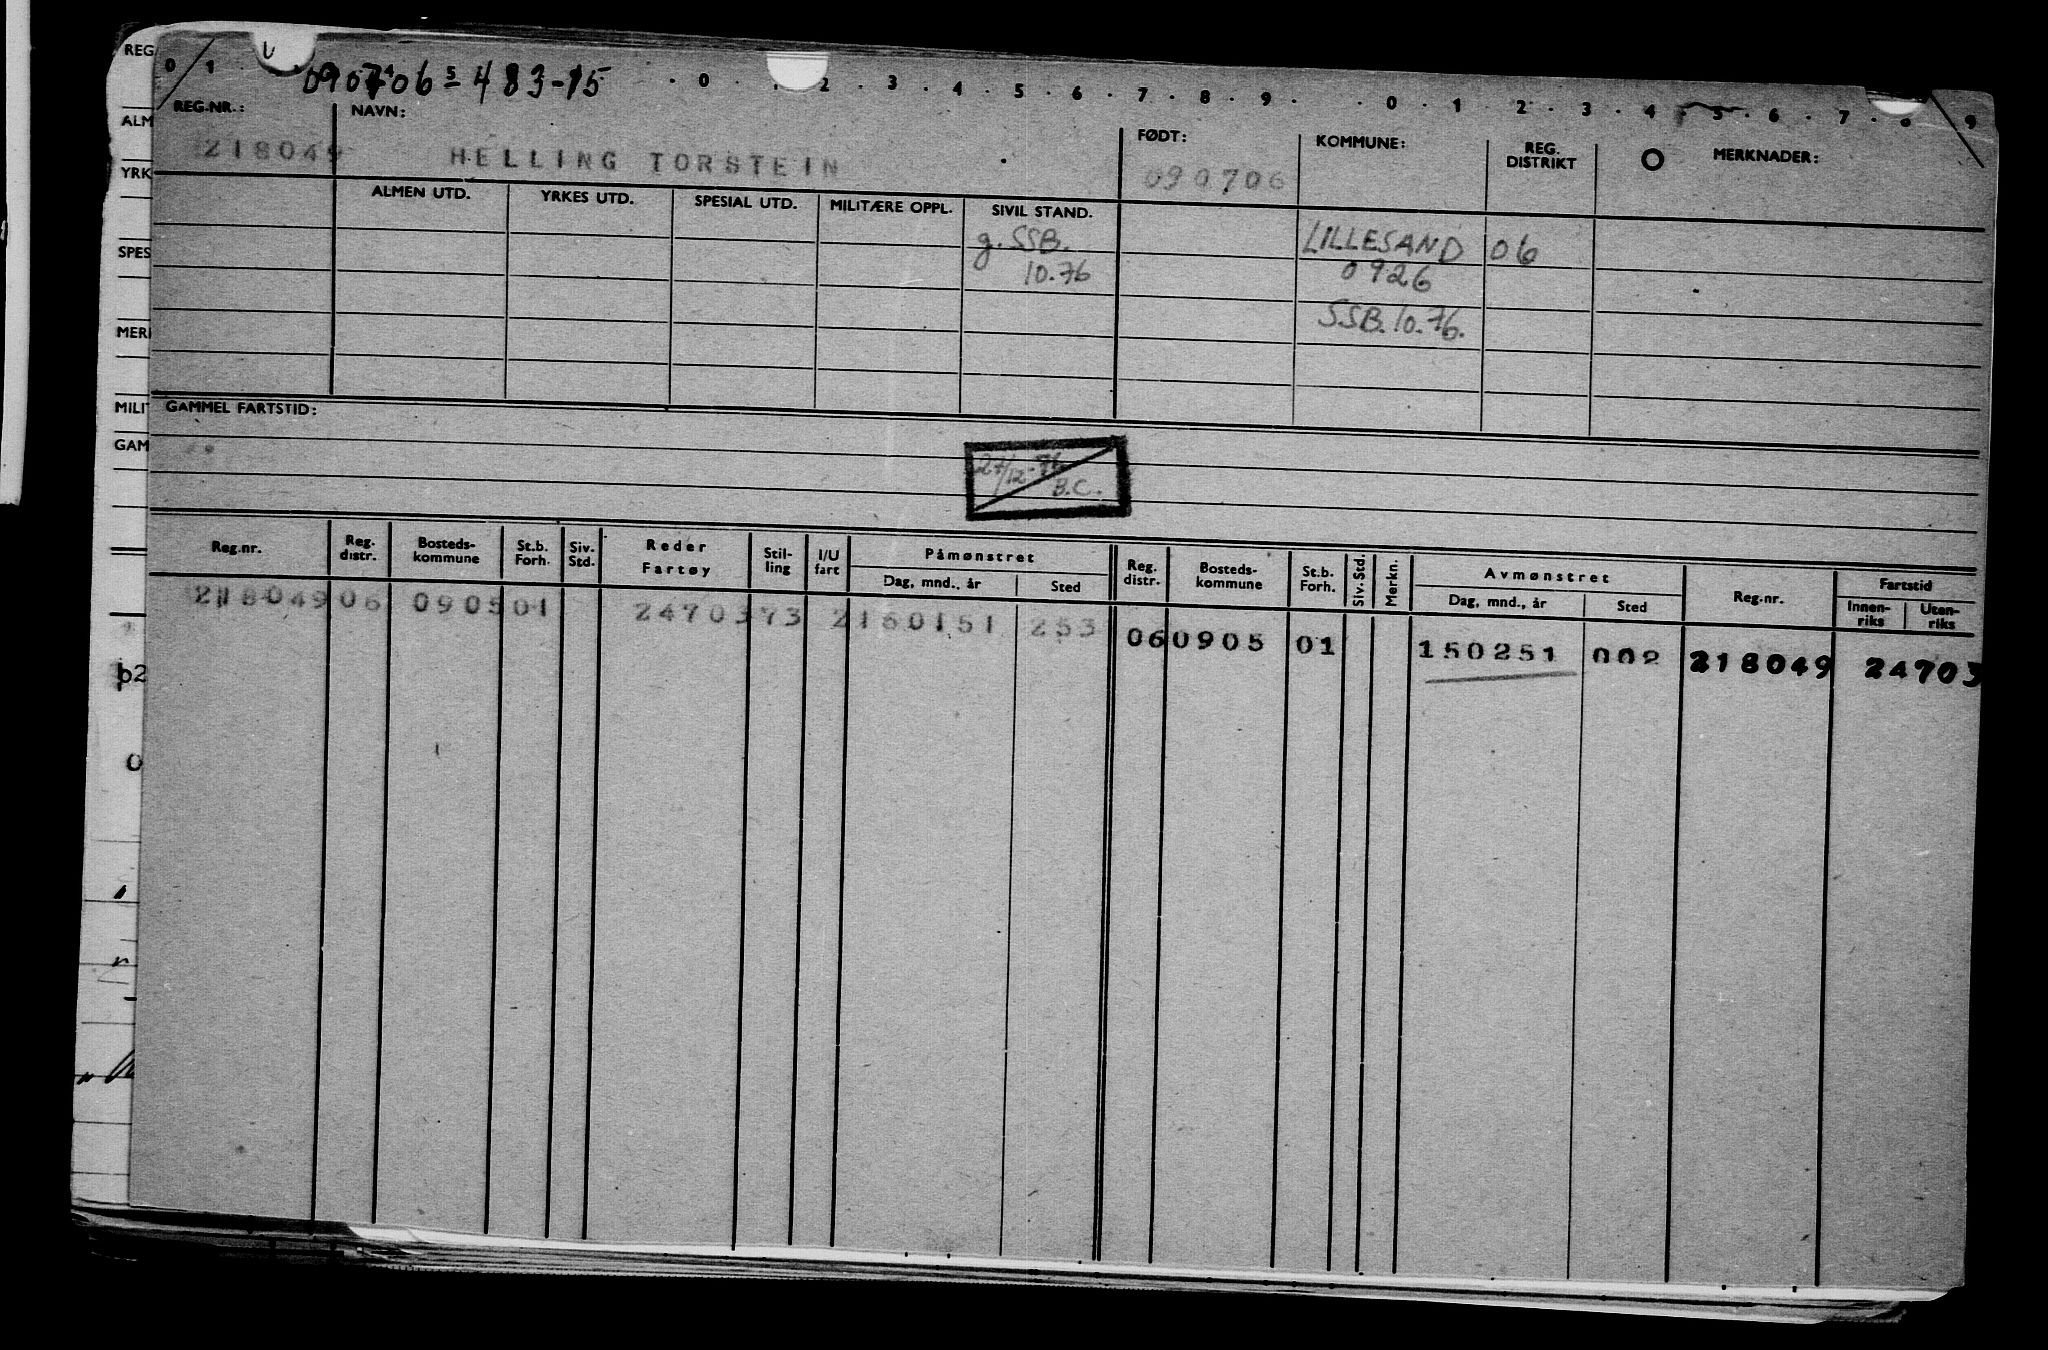 REG
0 1 090706 5 483-15 0 2 3 4 5 6 7 8 9 0 1 2 3 4 5 6 7 8 9
REG.-NR.: NAVN: FØDT: KOMMUNE: REG. DISTRIKT O MERKNADER:
ALM
218049 HELLING TORSTEIN 090706
YRK
ALMEN UTD. YRKES UTD. SPESIAL UTD. MILITÆRE OPPL. SIVIL STAND.
g. SSB. LILLESAND 06
SPES
10.76 0926
SSB. 10.76.
MERK
MILIT GAMMEL FARTSTID:
GAM
27/12-76
B.C.
Reg.nr. Reg. distr. Bosteds-kommune St.b. Forh. Siv. Std. Reder Fartøy Stil-ling I/U fart Påmønstret Dag, mnd., år Sted Reg. distr. Bosteds-kommune St.b. Forh. Siv. Std. Merkn. Avmønstret Dag, mnd., år Sted Reg.nr. Fartstid Innen-riks Uten-riks
218049 06 0905 01 24703 73 2 160151 253 06 0905 01 150251 002 218049 24703
b2
0